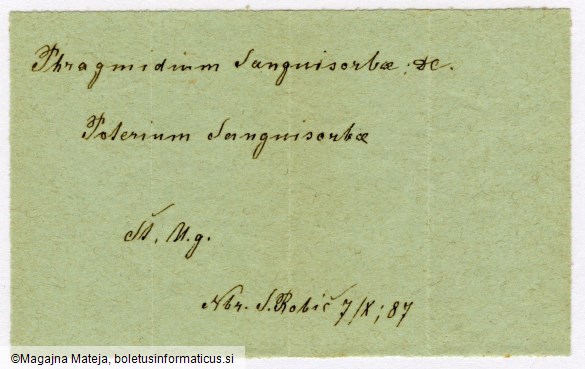 Phragmidium Sanguisorbæ. DC.
Poterium Sanguisorbæ
Št. U.g.
Nbr. S. Robič 7/X; 87
©Magajna Mateja, boletusinformaticus.si